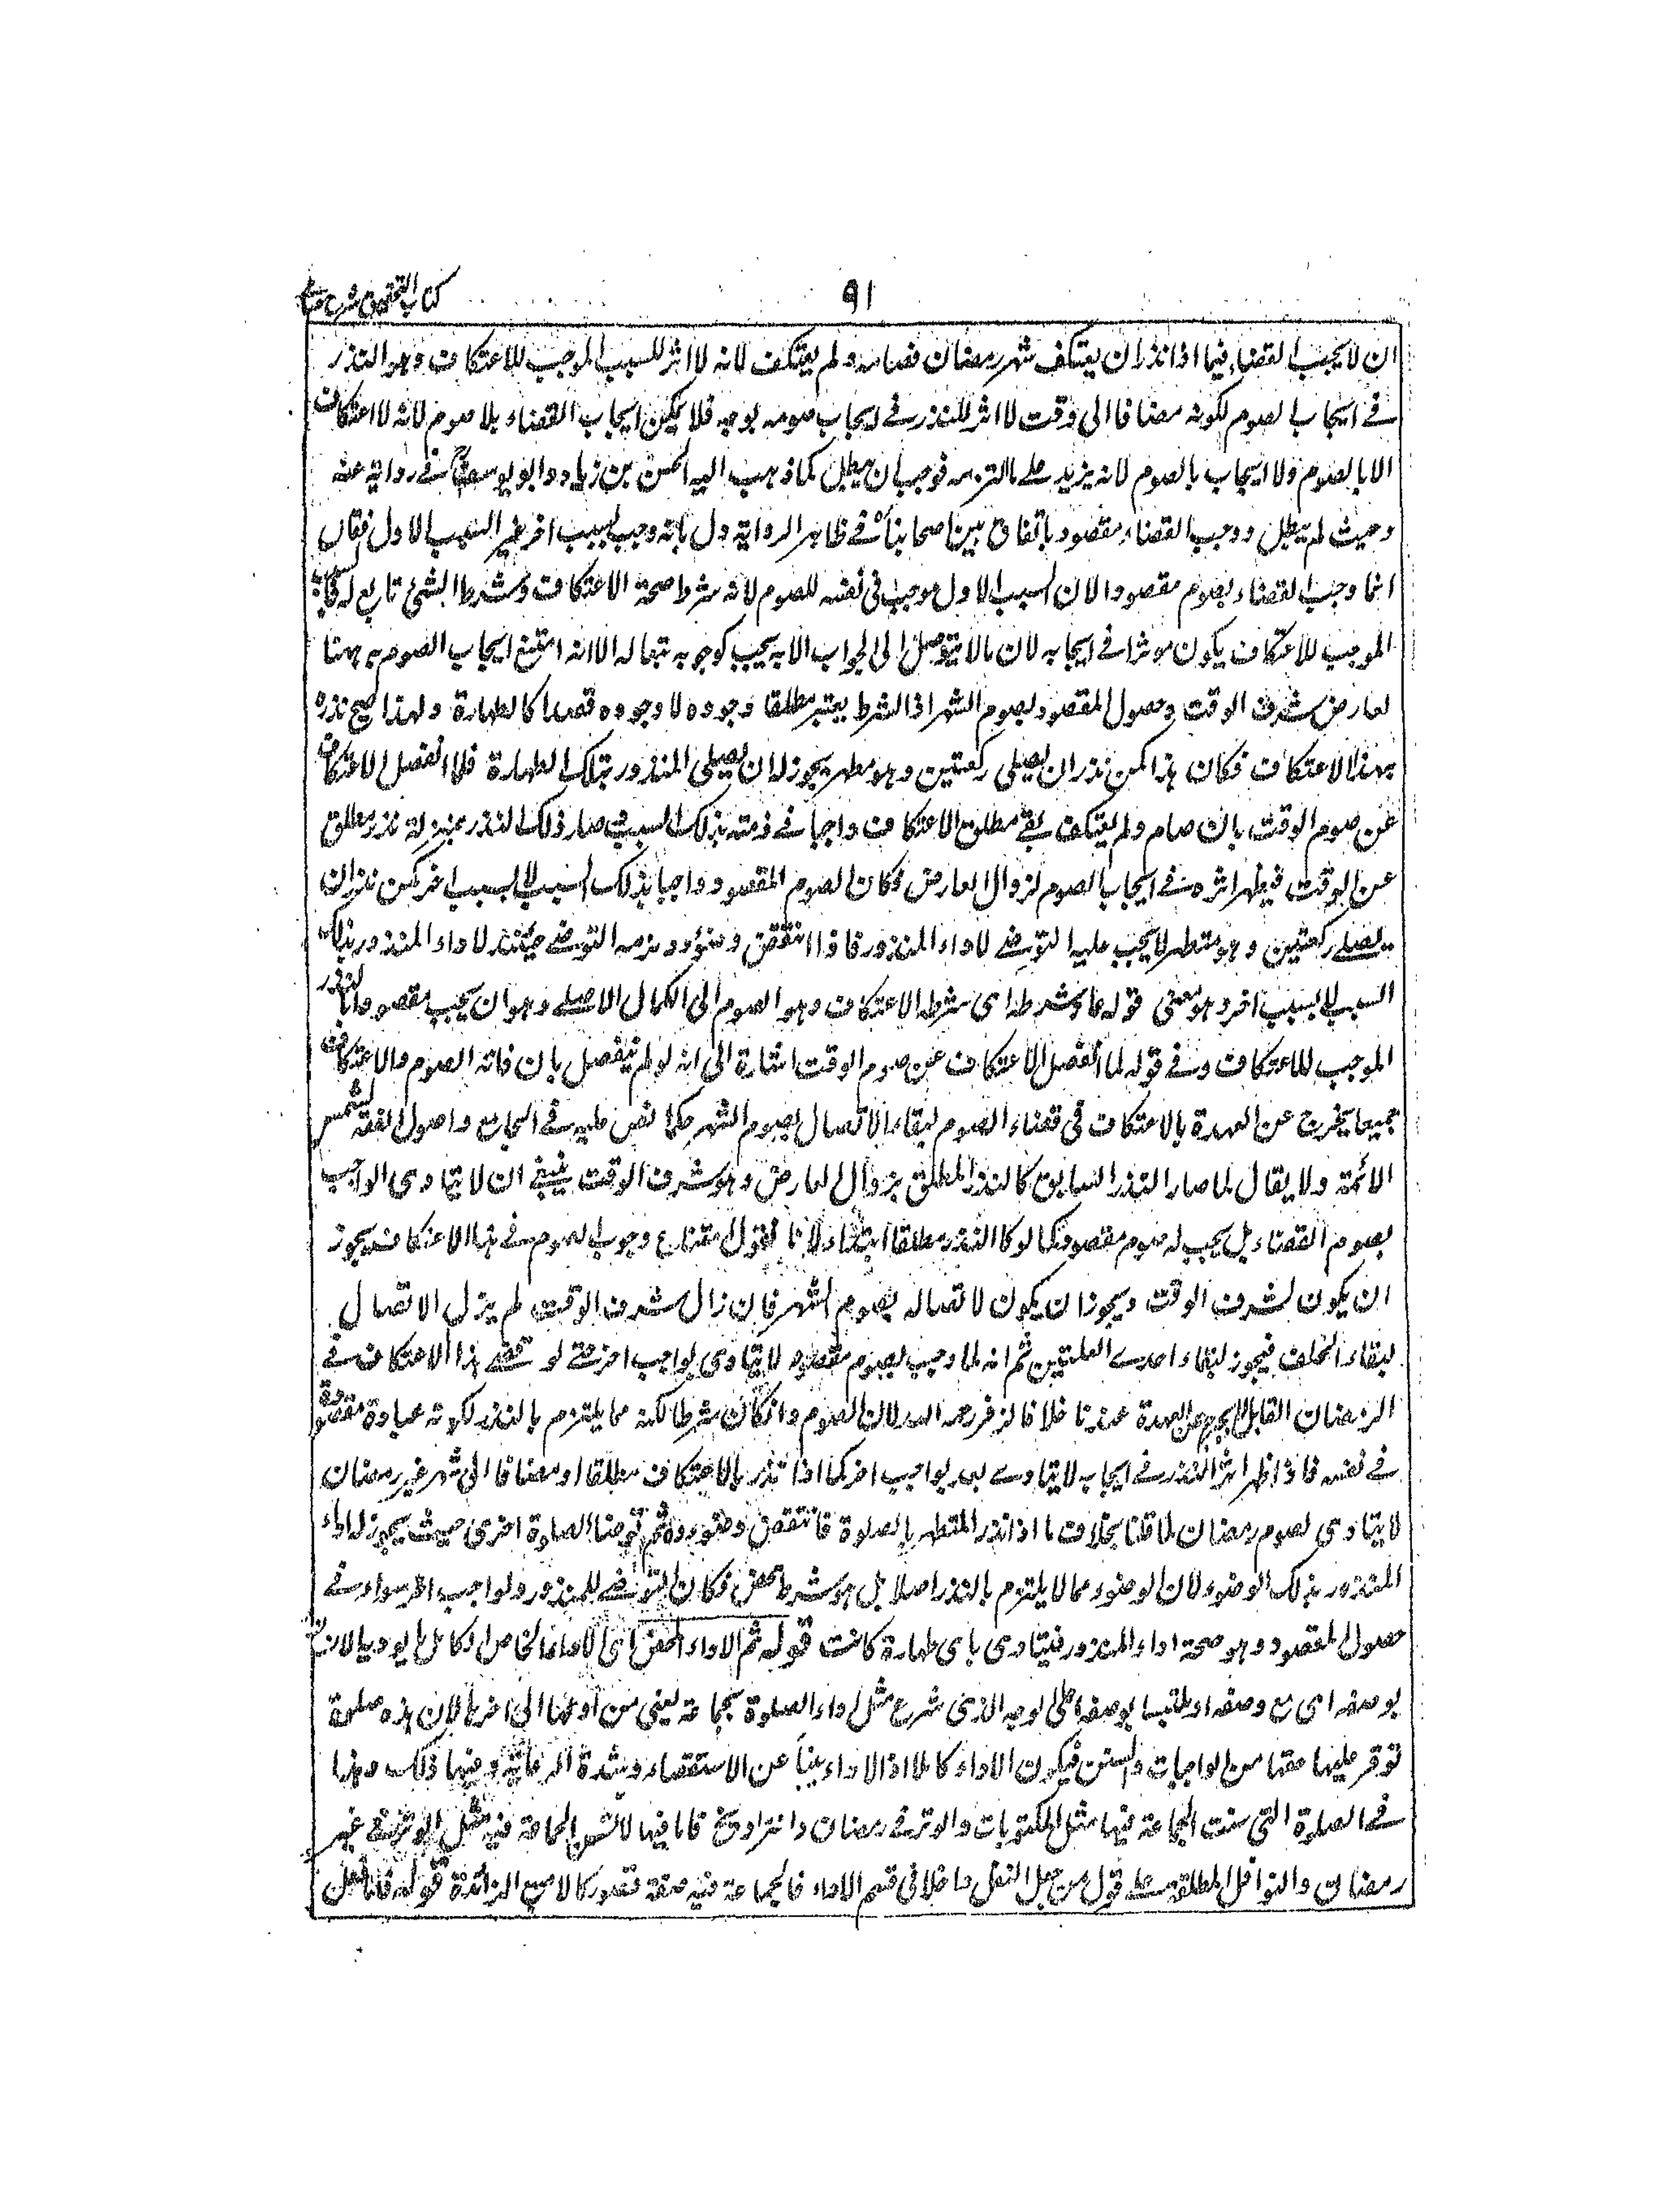 ٩١
كتاب التحقيق شرح حسامي
ان لا يجب القضاء فيما اذا نذر ان يعتكف شهر رمضان فصامه ولم يعتكف لانه لا اثر للسبب الموجب للاعتكاف وهو النذر
في ايجاب الصوم لكونه مضافا الى وقت لا اثر للنذر في ايجاب صومه بوجه فلا يمكن ايجاب القضاء بلا صوم لانه لا اعتكاف
الا بالصوم ولا ايجاب بالصوم لانه يزيد على ما التزمه فوجب ان يبطل كما ذهب اليه الحسن بن زياد وابو يوسف في رواية عنه
وحيث لم يبطل ووجب القضاء مقصود باتفاق بين اصحابنا في ظاهر الرواية دل بانه وجب بسبب اخر غير السبب الاول فقال
انما وجب القضاء بصوم مقصود لان السبب الاول موجب في نفسه للصوم لانه شرط صحة الاعتكاف وشرط الشئ تابع له فكان السبب
الموجب للاعتكاف يكون موثرا في ايجابه لان ما لا يتوصل الى الواجب الا به يجب كوجوبه تبعا له الا انه امتنع ايجاب الصوم به ههنا
لعارض شرف الوقت وحصول المقصود بصوم الشهر اذ الشرط يعتبر مطلقا وجوده لا وجوده قصدا كالطهارة ولهذا صح نذره
بهذا الاعتكاف فكان هذا كمن نذر ان يصلي ركعتين وهو مطهر يجوز له ان يصلي المنذور بتلك الطهارة فلما انفصل الاعتكاف
عن صوم الوقت بان صام ولم يعتكف بقي مطلق الاعتكاف واجبا في ذمته بذلك السبب صار ذلك النذر بمنزلة نذر مطلق
عن الوقت فيظهر اثره في ايجاب الصوم لزوال العارض فكان الصوم المقصود واجبا بذلك السبب لا بسبب اخر كمن نذر ان
يصلي ركعتين وهو متطهر لا يجب عليه التوضي لاداء المنذور فاذا انتقض وضوءه يلزمه التوضي حينئذ لاداء المنذور بذلك
السبب لا بسبب اخر وهو معنى قوله عاد شرطه اى شرط الاعتكاف وهو الصوم الى الكمال الاصلي وهو ان يجب مقصودا بالنذر
الموجب للاعتكاف وفي قوله لما انفصل الاعتكاف عن صوم الوقت اشارة الى انه لو لم ينفصل بان فاته الصوم والاعتكاف
جميعا يخرج عن العهدة بالاعتكاف في قضاء الصوم لبقاء الاتصال بصوم الشهر حكما نص عليه في الجامع واصول الفقه لشمس
الائمة ولا يقال لما صار النذر السابق كالنذر المطلق بزوال العارض وهو شرف الوقت ينبغي ان لا يتادى الواجب
بصوم القضاء بل يجب له صوم مقصود كما لو كان النذر مطلقا ابتداء لانا نقول امتناع وجوب الصوم في هذا الاعتكاف يجوز
ان يكون لشرف الوقت ويجوز ان يكون لاتصاله بصوم الشهر فان زال شرف الوقت لم يزل الاتصال
لبقاء الخلف فيجوز لبقاء احدى العلتين ثم انه لما وجب بصوم مقصود لا يتادى بواجب اخر حتى لو قضى هذا الاعتكاف في
الرمضان القابل لا يخرج عن العهدة عندنا خلافا لزفر رحمه الله لان الصوم وان كان شرطا لكنه مما يلتزم بالنذر لكونه عبادة مقصودة
في نفسه فاذا ظهر اثر النذر في ايجابه لا يتادى بواجب اخر كما اذا نذر بالاعتكاف مطلقا او مضافا الى شهر غير رمضان
لا يتادى بصوم رمضان لما قلنا بخلاف ما اذا نذر المتطهر بالصلوة فانتقض وضوءه ثم توضأ لصلوة اخرى حيث يجوز له اداء
المنذور بذلك الوضوء لان الوضوء مما لا يلتزم بالنذر اصلا بل هو شرط محض فكان التوضي للمنذور ولواجب اخر سواء في
حصول المقصود وهو صحة اداء المنذور فيتادى باى طهارة كانت قوله ثم الاداء المحض اى الاداء الخالص الكامل ما يوديه الانسان
بوصفه اى مع وصفه او ملتبسا بوصفه على الوجه الذى شرع مثل اداء الصلوة بجماعة يعني من اولها الى اخرها لان هذه صلوة
توفر عليها حقها من الواجبات والسنن فيكون الاداء كاملا اذ الاداء ينبئ عن الاستقصاء وشدة الرعاية وفيها ذلك وهذا
في الصلوة التى سنت الجماعة فيها مثل المكتوبات والوتر في رمضان والتراويح فاما فيما لا تسن الجماعة فيه مثل الوتر في غير
رمضان والنوافل المطلقة على قول من جعل النفل داخلا في قسم الاداء فالجماعة فيه صفة قصور كالاصبع الزائدة قوله فاما فعل